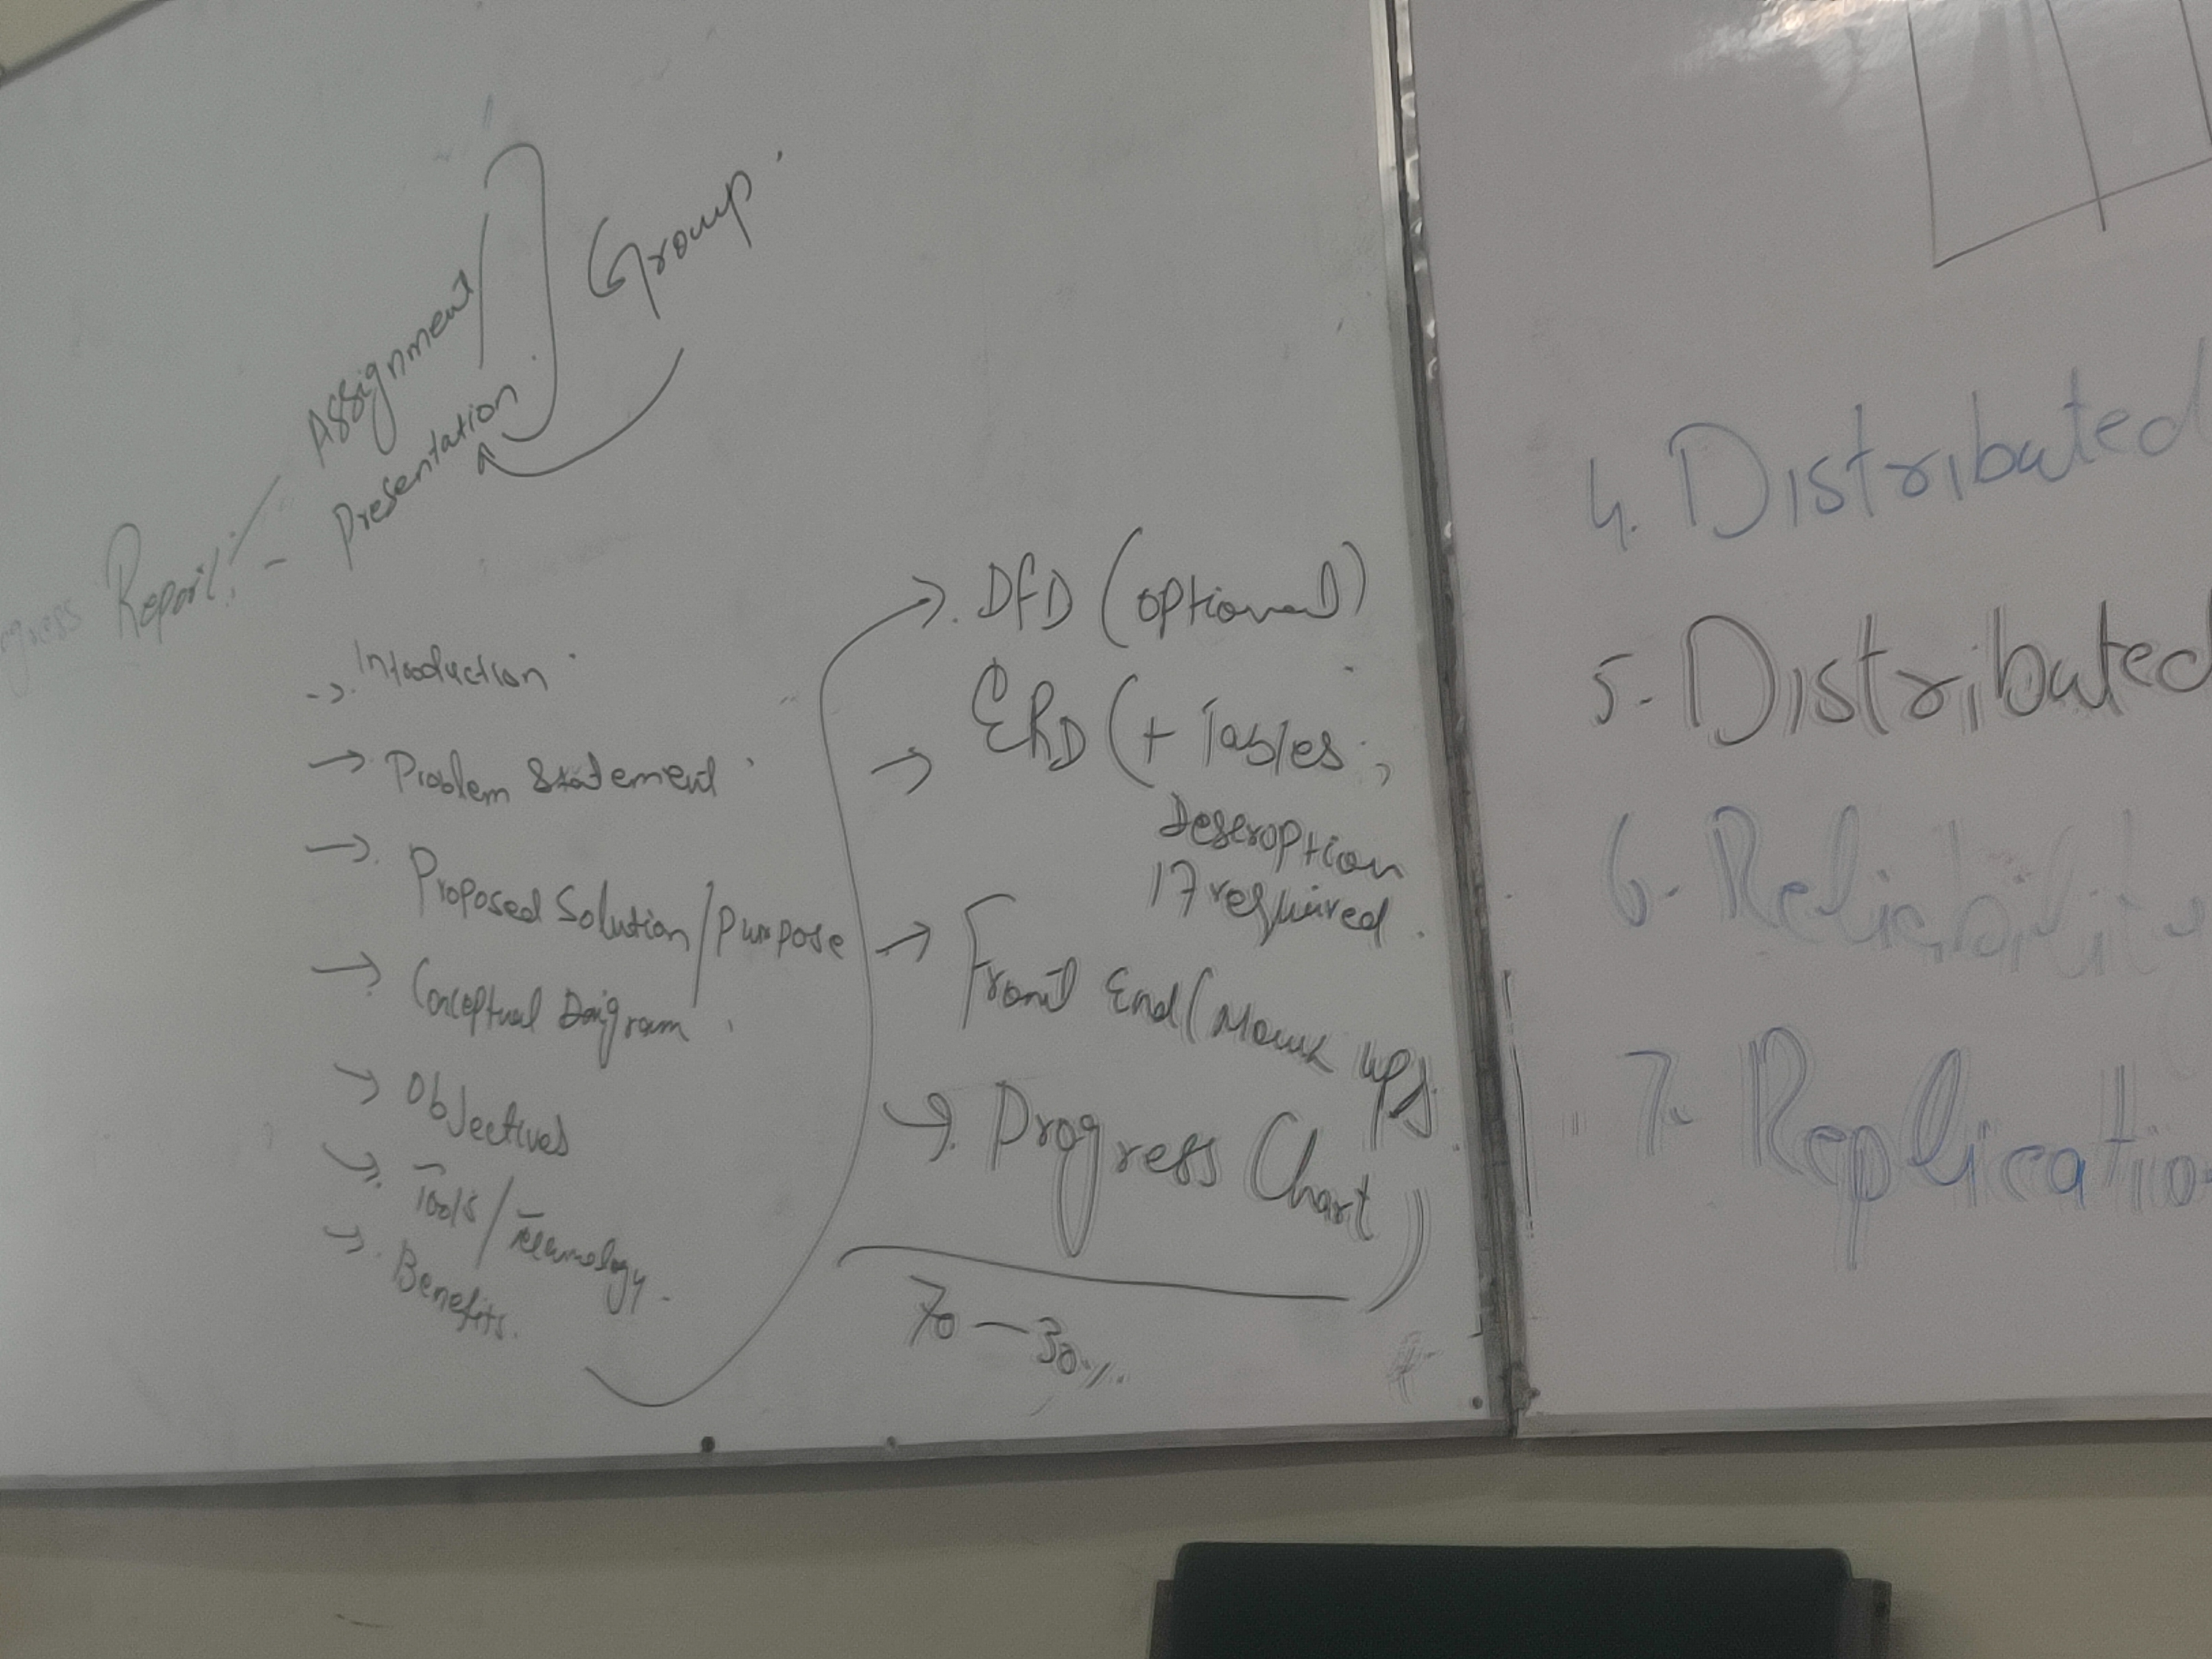 Assignment/
Presentation
Group.
Report:-
-> Introduction
-> Problem Statement
-> Proposed Solution/Purpose
-> Conceptual Daigram
-> Objectives
-> Tools/Technology.
-> Benefits.
-> DFD (optional)
-> ERD (+ Tables,
Descroption
if required.
-> Front End (Mouk ups)
-> Progress Chart
70 — 30%
4. Distributed
5- Distributed
6- Reliability
7- Replicatio